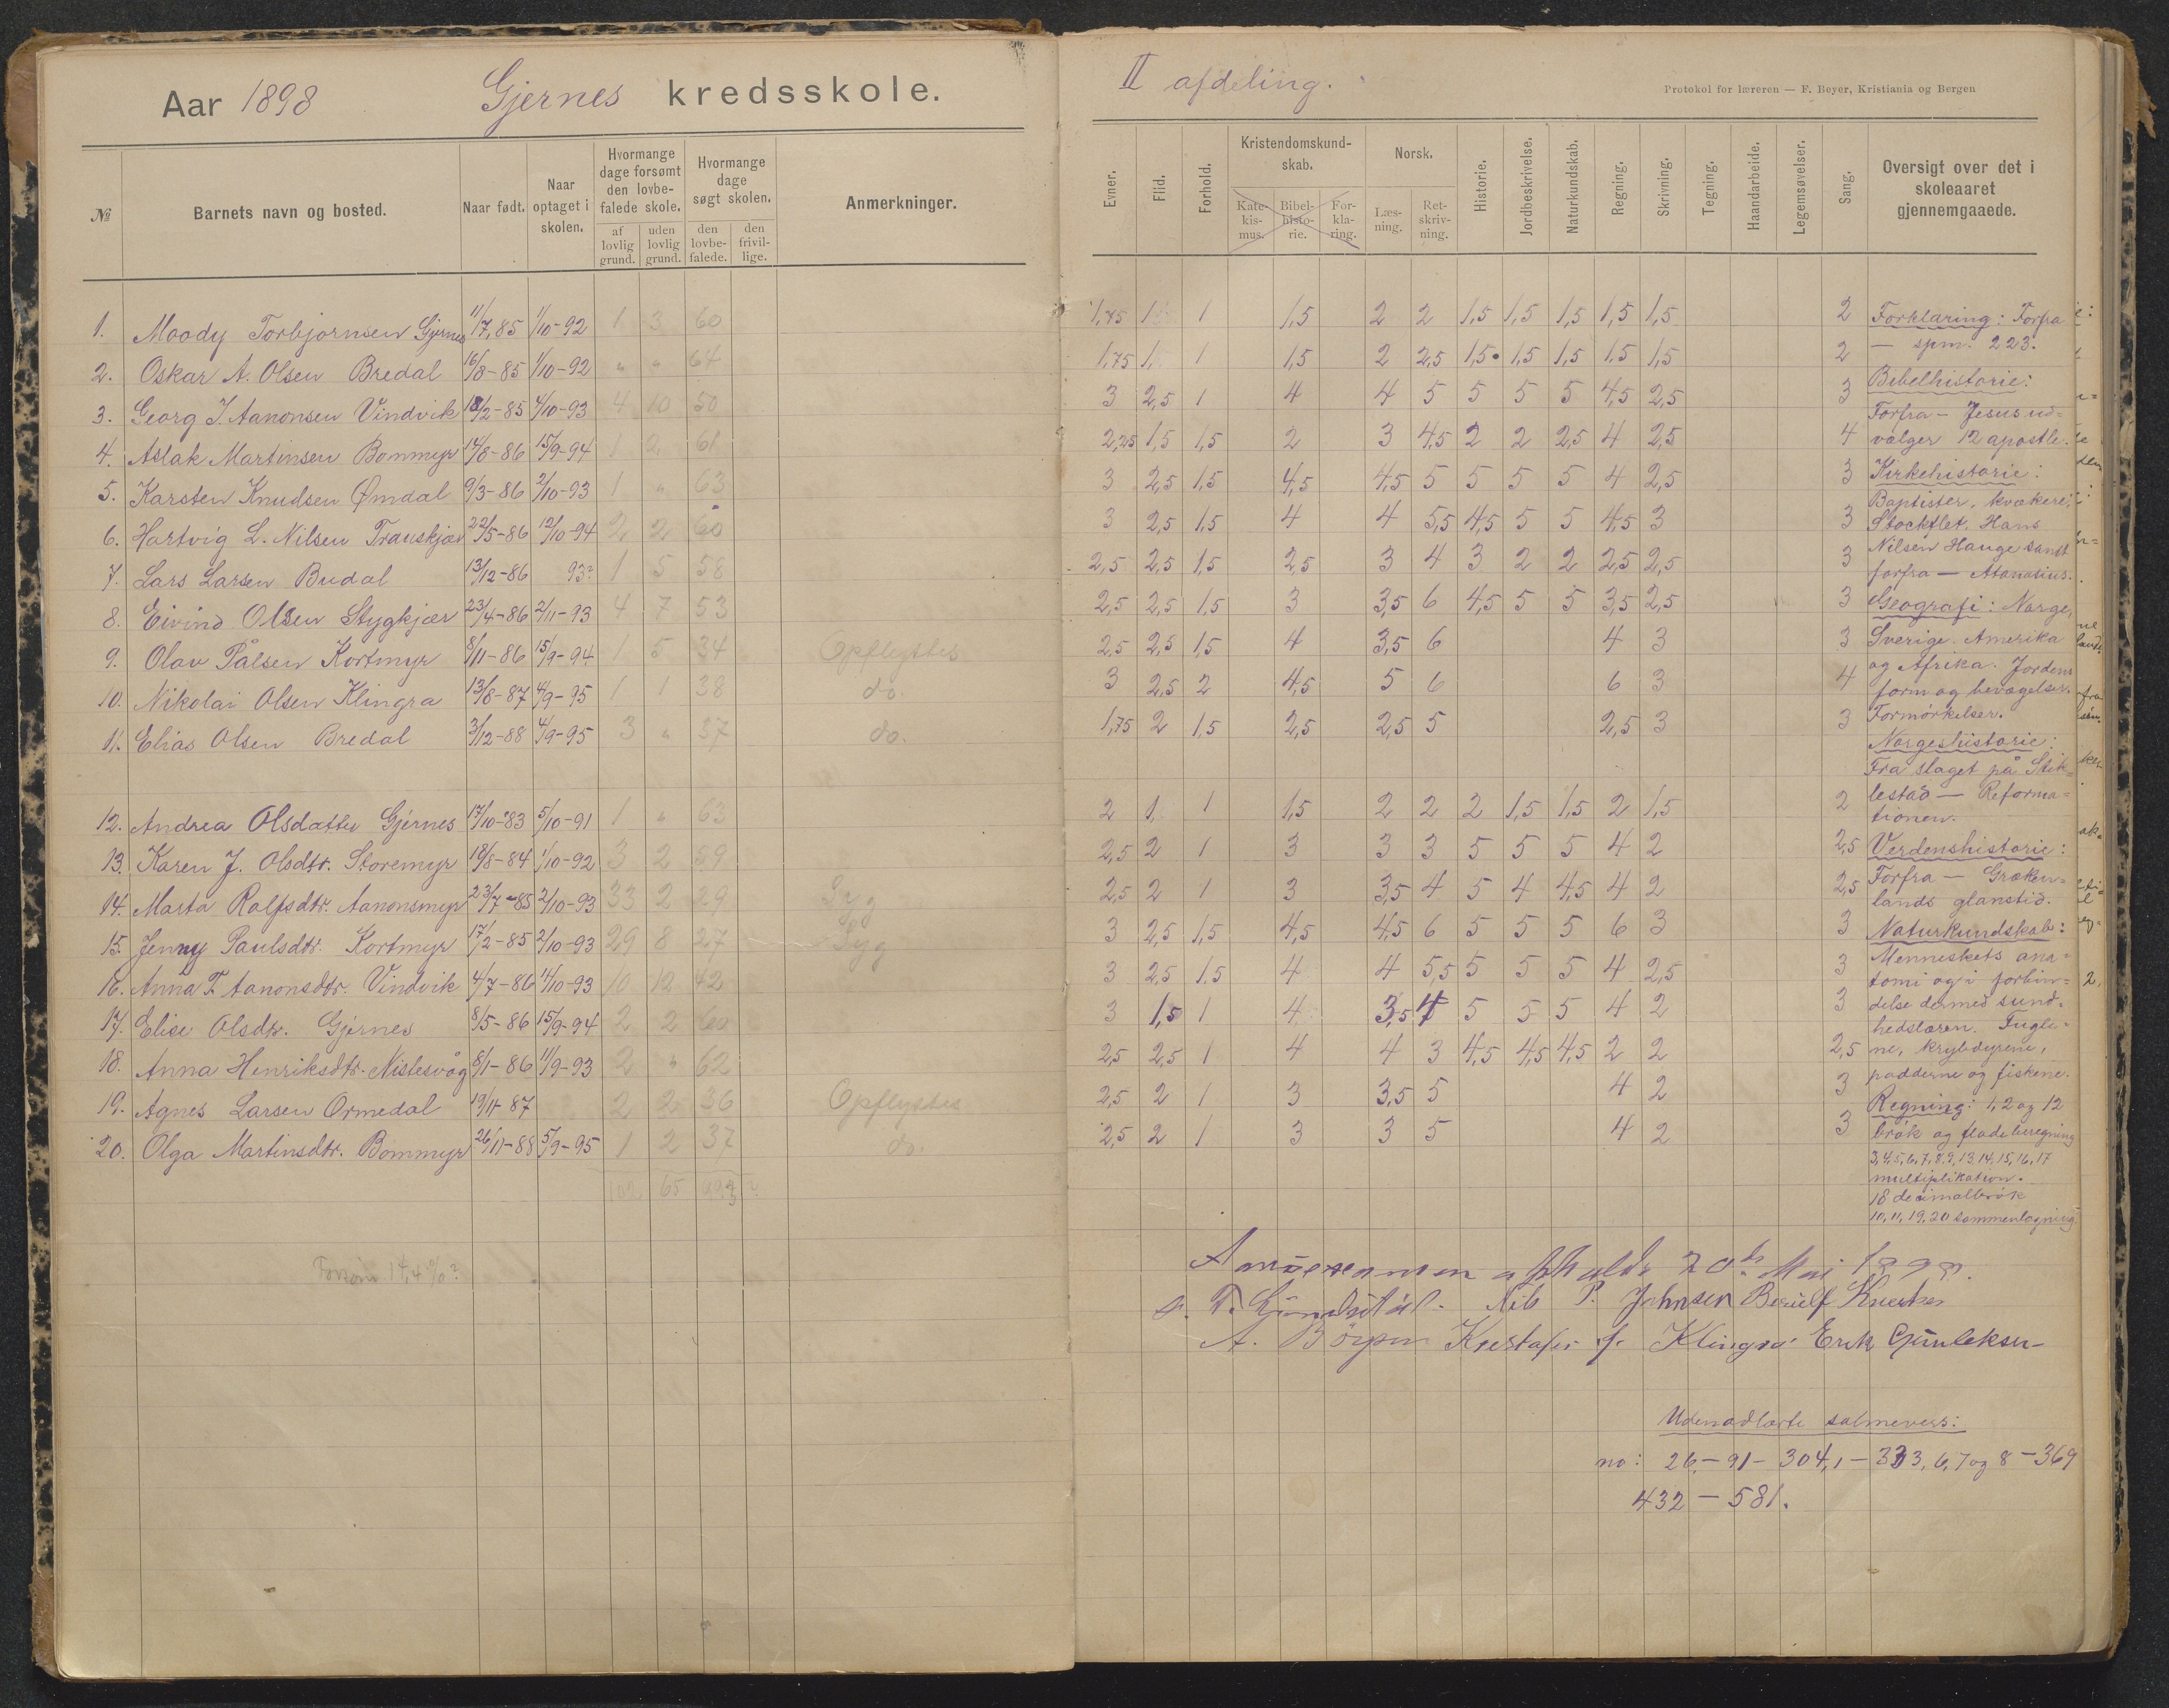 Aar 1898 Gjernes kredsskole.
№ Barnets navn og bosted. Naar født. Naar optaget i skolen. Hvormange dage forsømt den lovbefalede skole. af lovlig grund. uden lovlig grund. Hvormange dage søgt skolen. den lovbefalede. den frivillige. Anmerkninger.
1. Moody Torbjørnsen Gjernes 11/7,85 1/10-92 1 3 60
2. Oskar A. Olsen Bredal 16/8-85 1/10-92 " " 64
3. Georg J. Aanonsen Vindvik 18/2-85 4/10-93 4 10 50
4. Aslak Martinsen Bommyr 14/8-86 15/9-94 1 2 61
5. Karsten Knudsen Ømdal 9/3-86 2/10-93 1 " 63
6. Hartvig L. Nilsen Trauskjær 22/5-86 12/10-94 2 2 60
7. Lars Larsen Budal 13/12-86 93? 1 5 58
8. Eivind Olsen Stygkjær 23/4-86 2/11-93 4 7 53
9. Olav Pålsen Kortmyr 8/11-86 15/9-94 1 5 34 Opflyttes
10. Nikolai Olsen Klingra 13/8-87 4/9-95 1 1 38 do.
11. Elias Olsen Bredal 3/12-88 4/9-95 3 " 37 do.
12. Andrea Olsdatter Gjernes 17/10-83 5/10-91 1 " 63
13. Karen J. Olsdtr. Storemyr 18/8-84 1/10-92 3 2 59
14. Marta Rolfsdtr. Aanonsmyr 23/7-85 2/10-93 33 2 29 Syg
15. Jenny Paulsdtr. Kortmyr 17/2-85 2/10-93 29 8 27 Syg
16. Anna T. Aanonsdtr. Vindvik 4/7-86 4/10-93 10 12 42
17. Elise Olsdtr. Gjernes 8/5-86 15/9-94 2 2 60
18. Anna Henriksdtr. Nistesvåg 8/1-86 11/9-93 2 " 62
19. Agnes Larsen Ormedal 19/11-87 2 2 36 Opflyttes
20. Olga Martinsdtr. Bommyr 26/11-88 5/9-95 1 2 37 do.
102 65
14,4 %?
II afdeling.
Protokol for læreren — F. Beyer, Kristiania og Bergen
Evner. Flid. Forhold. Kristendomskundskab. Katekismus. Bibelhistorie. Forklaring. Norsk. Læsning. Retskrivning. Historie. Jordbeskrivelse. Naturkundskab. Regning. Skrivning. Tegning. Haandarbeide. Legemsøvelser. Sang. Oversigt over det i skoleaaret gjennemgaaede.
1,75 1 1 1,5 2 2 1,5 1,5 1,5 1,5 1,5 2
1,75 1, 1 1,5 2 2,5 1,5 1,5 1,5 1,5 1,5 2
3 2,5 1 4 4 5 5 5 5 4,5 2,5 3
2,25 1,5 1,5 2 3 4,5 2 2 2,5 4 2,5 4
3 2,5 1,5 4,5 4,5 5 5 5 5 4 2,5 3
3 2,5 1,5 4 4 5,5 4,5 5 5 4,5 3 3
2,5 2,5 1,5 2,5 3 4 3 2 2 2,5 2,5 3
2,5 2,5 1,5 3 3,5 6 4,5 5 5 3,5 2,5 3
2,5 2,5 1,5 4 3,5 6 4 3 3
3 2,5 2 4,5 5 6 6 3 4
1,75 2 1,5 2,5 2,5 5 2,5 3 3
2 1, 1 1,5 2 2 2 1,5 1,5 2 1,5 2
2,5 2 1 3 3 3 5 5 5 4 2 2,5
2,5 2 1 3 3,5 4 5 4 4,5 4 2 2,5
3 2,5 1,5 4,5 4,5 6 5 5 5 6 3 3
3 2,5 1,5 4 4 5,5 5 5 5 4 2,5 3
3 1,5 1 4 3,5 4 5 5 5 4 2 3
2,5 2,5 1 4 4 3 4,5 4,5 4,5 2 2 2,5
2,5 2 1 3 3,5 5 4 2 3
2,5 2 1 3 3 5 4 2 3
Forklaring: Forfra
— spm. 223.
Bibelhistorie:
Forfra — Jesus ud-
vælger 12 apostle.
Kirkehistorie:
Baptister, kvækere,
Stockflet. Hans
Nilsen Hauge samt
forfra — Atanasius.
Geografi: Norge,
Sverige. Amerika
og Afrika. Jordens
form og bevægelser.
Formørkelser.
Norgeshistorie:
Fra slaget på Stik-
lestad — Reforma-
tionen.
Verdenshistorie:
Forfra — Græken-
lands glanstid.
Naturkundskab:
Menneskets ana-
tomi og i forbin-
delse dermed sund-
hedslæren. Fugle-
ne, krybdyrene,
padderne og fiskene.
Regning: 1,2 og 12
brøk og fladeberegning
3,4,5,6,7,8,9,13,14,15,16,17
multiplikation.
18 decimalbrøk
10,11,19,20 sammenlægning.
Mai
P. Johnsen
A. Klingra Erik
Udenadlærte salmevers:
no: 26 — 91 — 304,1 — 333,6,7 og 8 — 369
432 — 581.